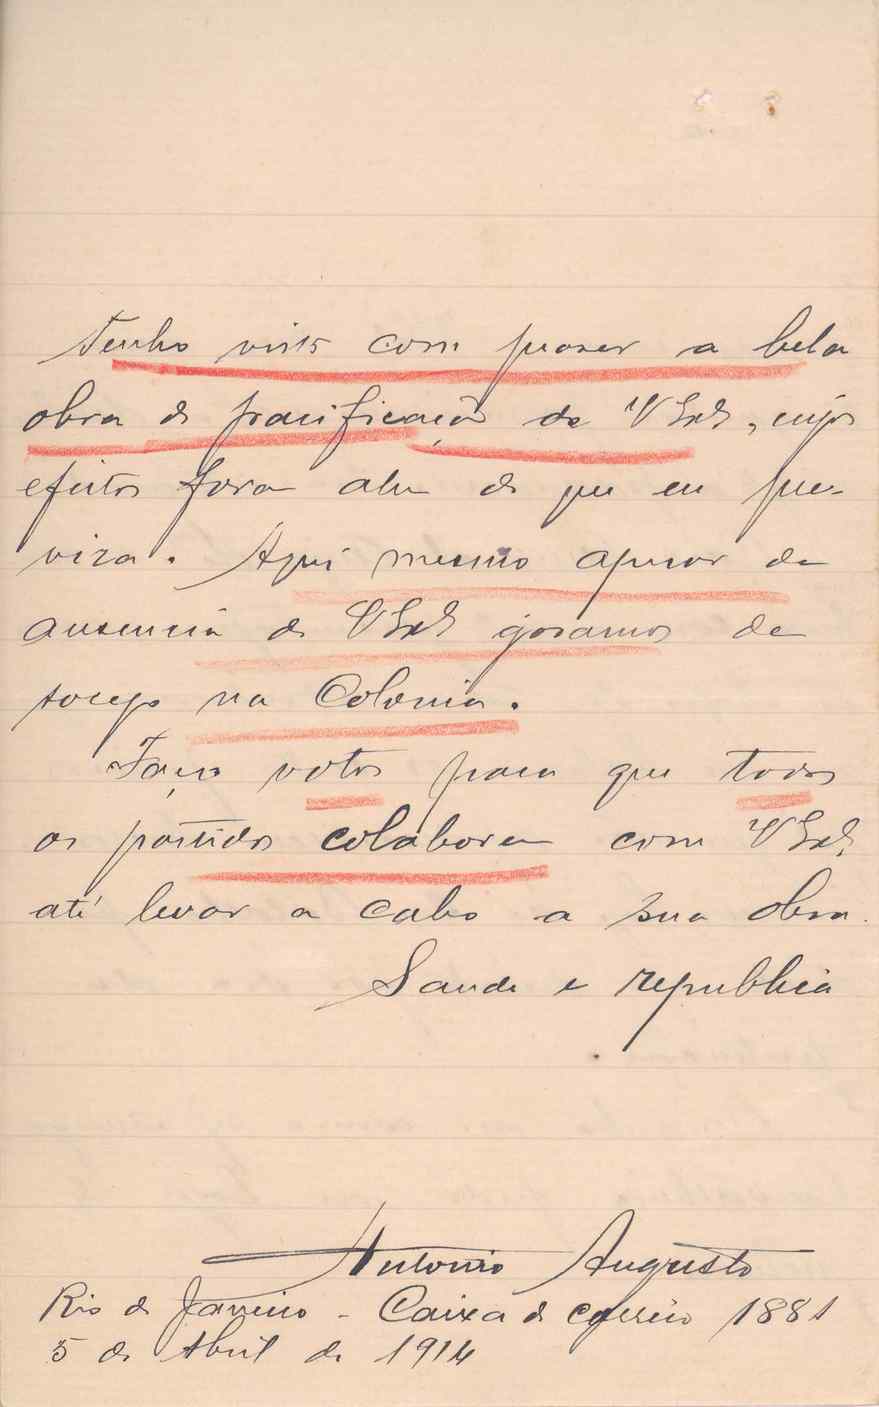 Tenho visto com praser a bela
obra de pacificação de V Exª, cujos
efeitos foram alem do que eu pre-
vira. Aqui mesmo apesar da
ausencia de V Exª gosamos de
socego na Colonia.
Faço votos para que todos
os partidos colaborem com V Exª,
até levar a cabo a sua obra.
Saude e republica
Antonio Augusto
Rio de Janeiro - Caixa de correio 1881
5 de Abril de 1914